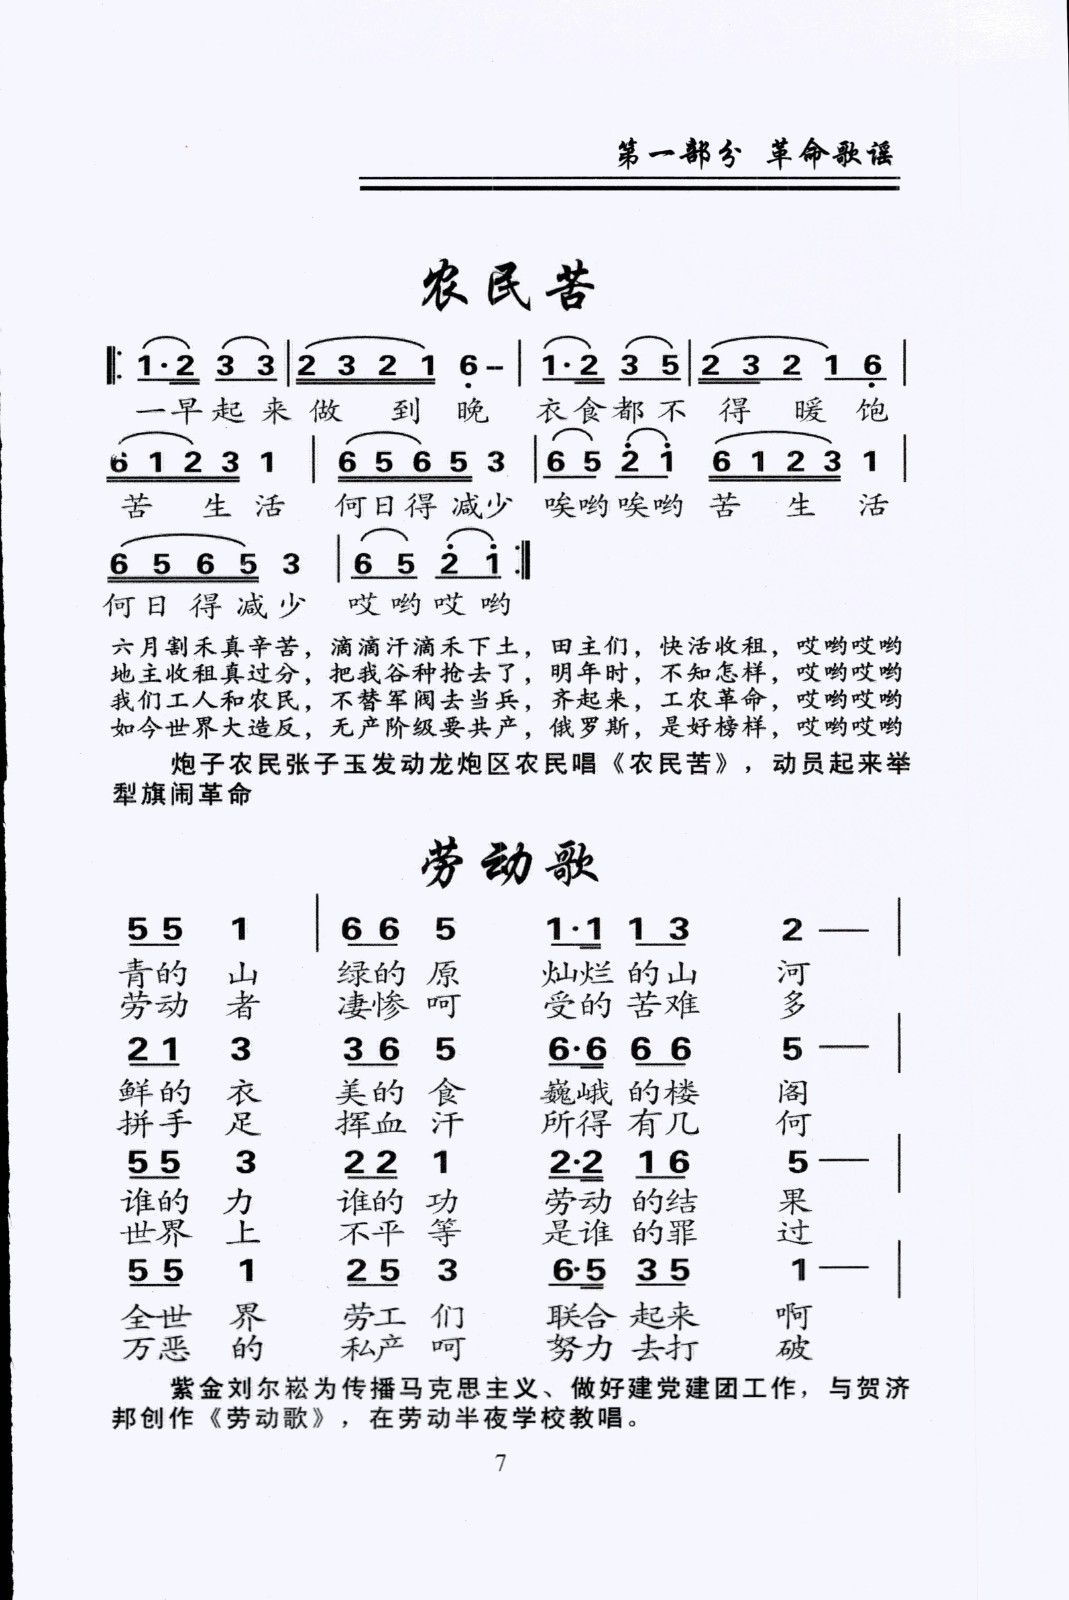 第一部分 革命歌谣
农民苦
‖: 1·2 3 3 | 2 3 2 1 6 -- | 1·2 3 5 | 2 3 2 1 6 |
一早起来做 到 晚 衣食都不 得 暖 饱
6 1 2 3 1 | 6 5 6 5 3 | 6 5 2 1 6 1 2 3 1 |
苦 生 活 何日得减少 唉哟唉哟 苦 生 活
6 5 6 5 3 | 6 5 2 1 :‖
何日得减少 哎哟哎哟
六月割禾真辛苦，滴滴汗滴禾下土，田主们，快活收租，哎哟哎哟
地主收租真过分，把我谷种抢去了，明年时，不知怎样，哎哟哎哟
我们工人和农民，不替军阀去当兵，齐起来，工农革命，哎哟哎哟
如今世界大造反，无产阶级要共产，俄罗斯，是好榜样，哎哟哎哟
炮子农民张子玉发动龙炮区农民唱《农民苦》，动员起来举
犁旗闹革命
劳动歌
5 5 1 | 6 6 5 1·1 1 3 2 — |
青的 山 绿的 原 灿烂 的山 河
劳动 者 凄惨 呵 受的 苦难 多
2 1 3 3 6 5 6·6 6 6 5 — |
鲜的 衣 美的 食 巍峨 的楼 阁
拼手 足 挥血 汗 所得 有几 何
5 5 3 2 2 1 2·2 1 6 5 — |
谁的 力 谁的 功 劳动 的结 果
世界 上 不平 等 是谁 的罪 过
5 5 1 2 5 3 6·5 3 5 1 — |
全世 界 劳工 们 联合 起来 啊
万恶 的 私产 呵 努力 去打 破
紫金刘尔崧为传播马克思主义、做好建党建团工作，与贺济
邦创作《劳动歌》，在劳动半夜学校教唱。
7